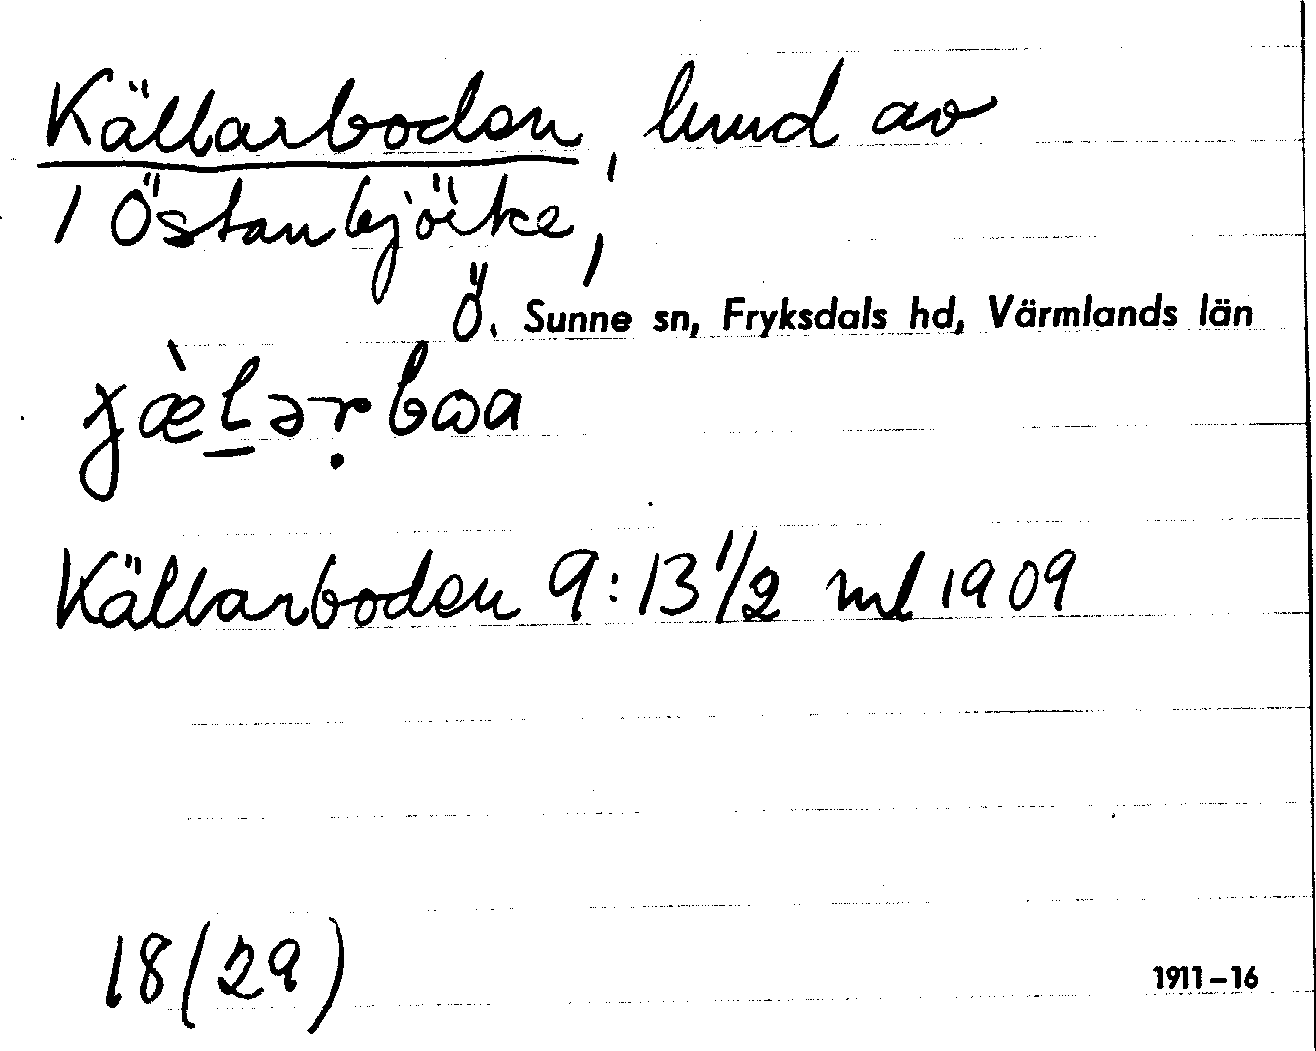 Källarboden, hmd av
1 Östanbjörke,
Ö. Sunne sn, Fryksdals hd, Värmlands län
Källarboden 9:13 1/2 ml 1909
18(29)
1911–16